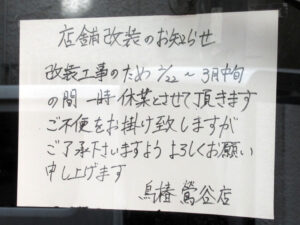 店舗改装のお知らせ
改装工事のため 2/22 ~ 3月中旬
の間一時休業とさせて頂きます
ご不便をお掛け致しますが
ご了承下さいますよう よろしくお願い
申し上げます
鳥椿 鶯谷店